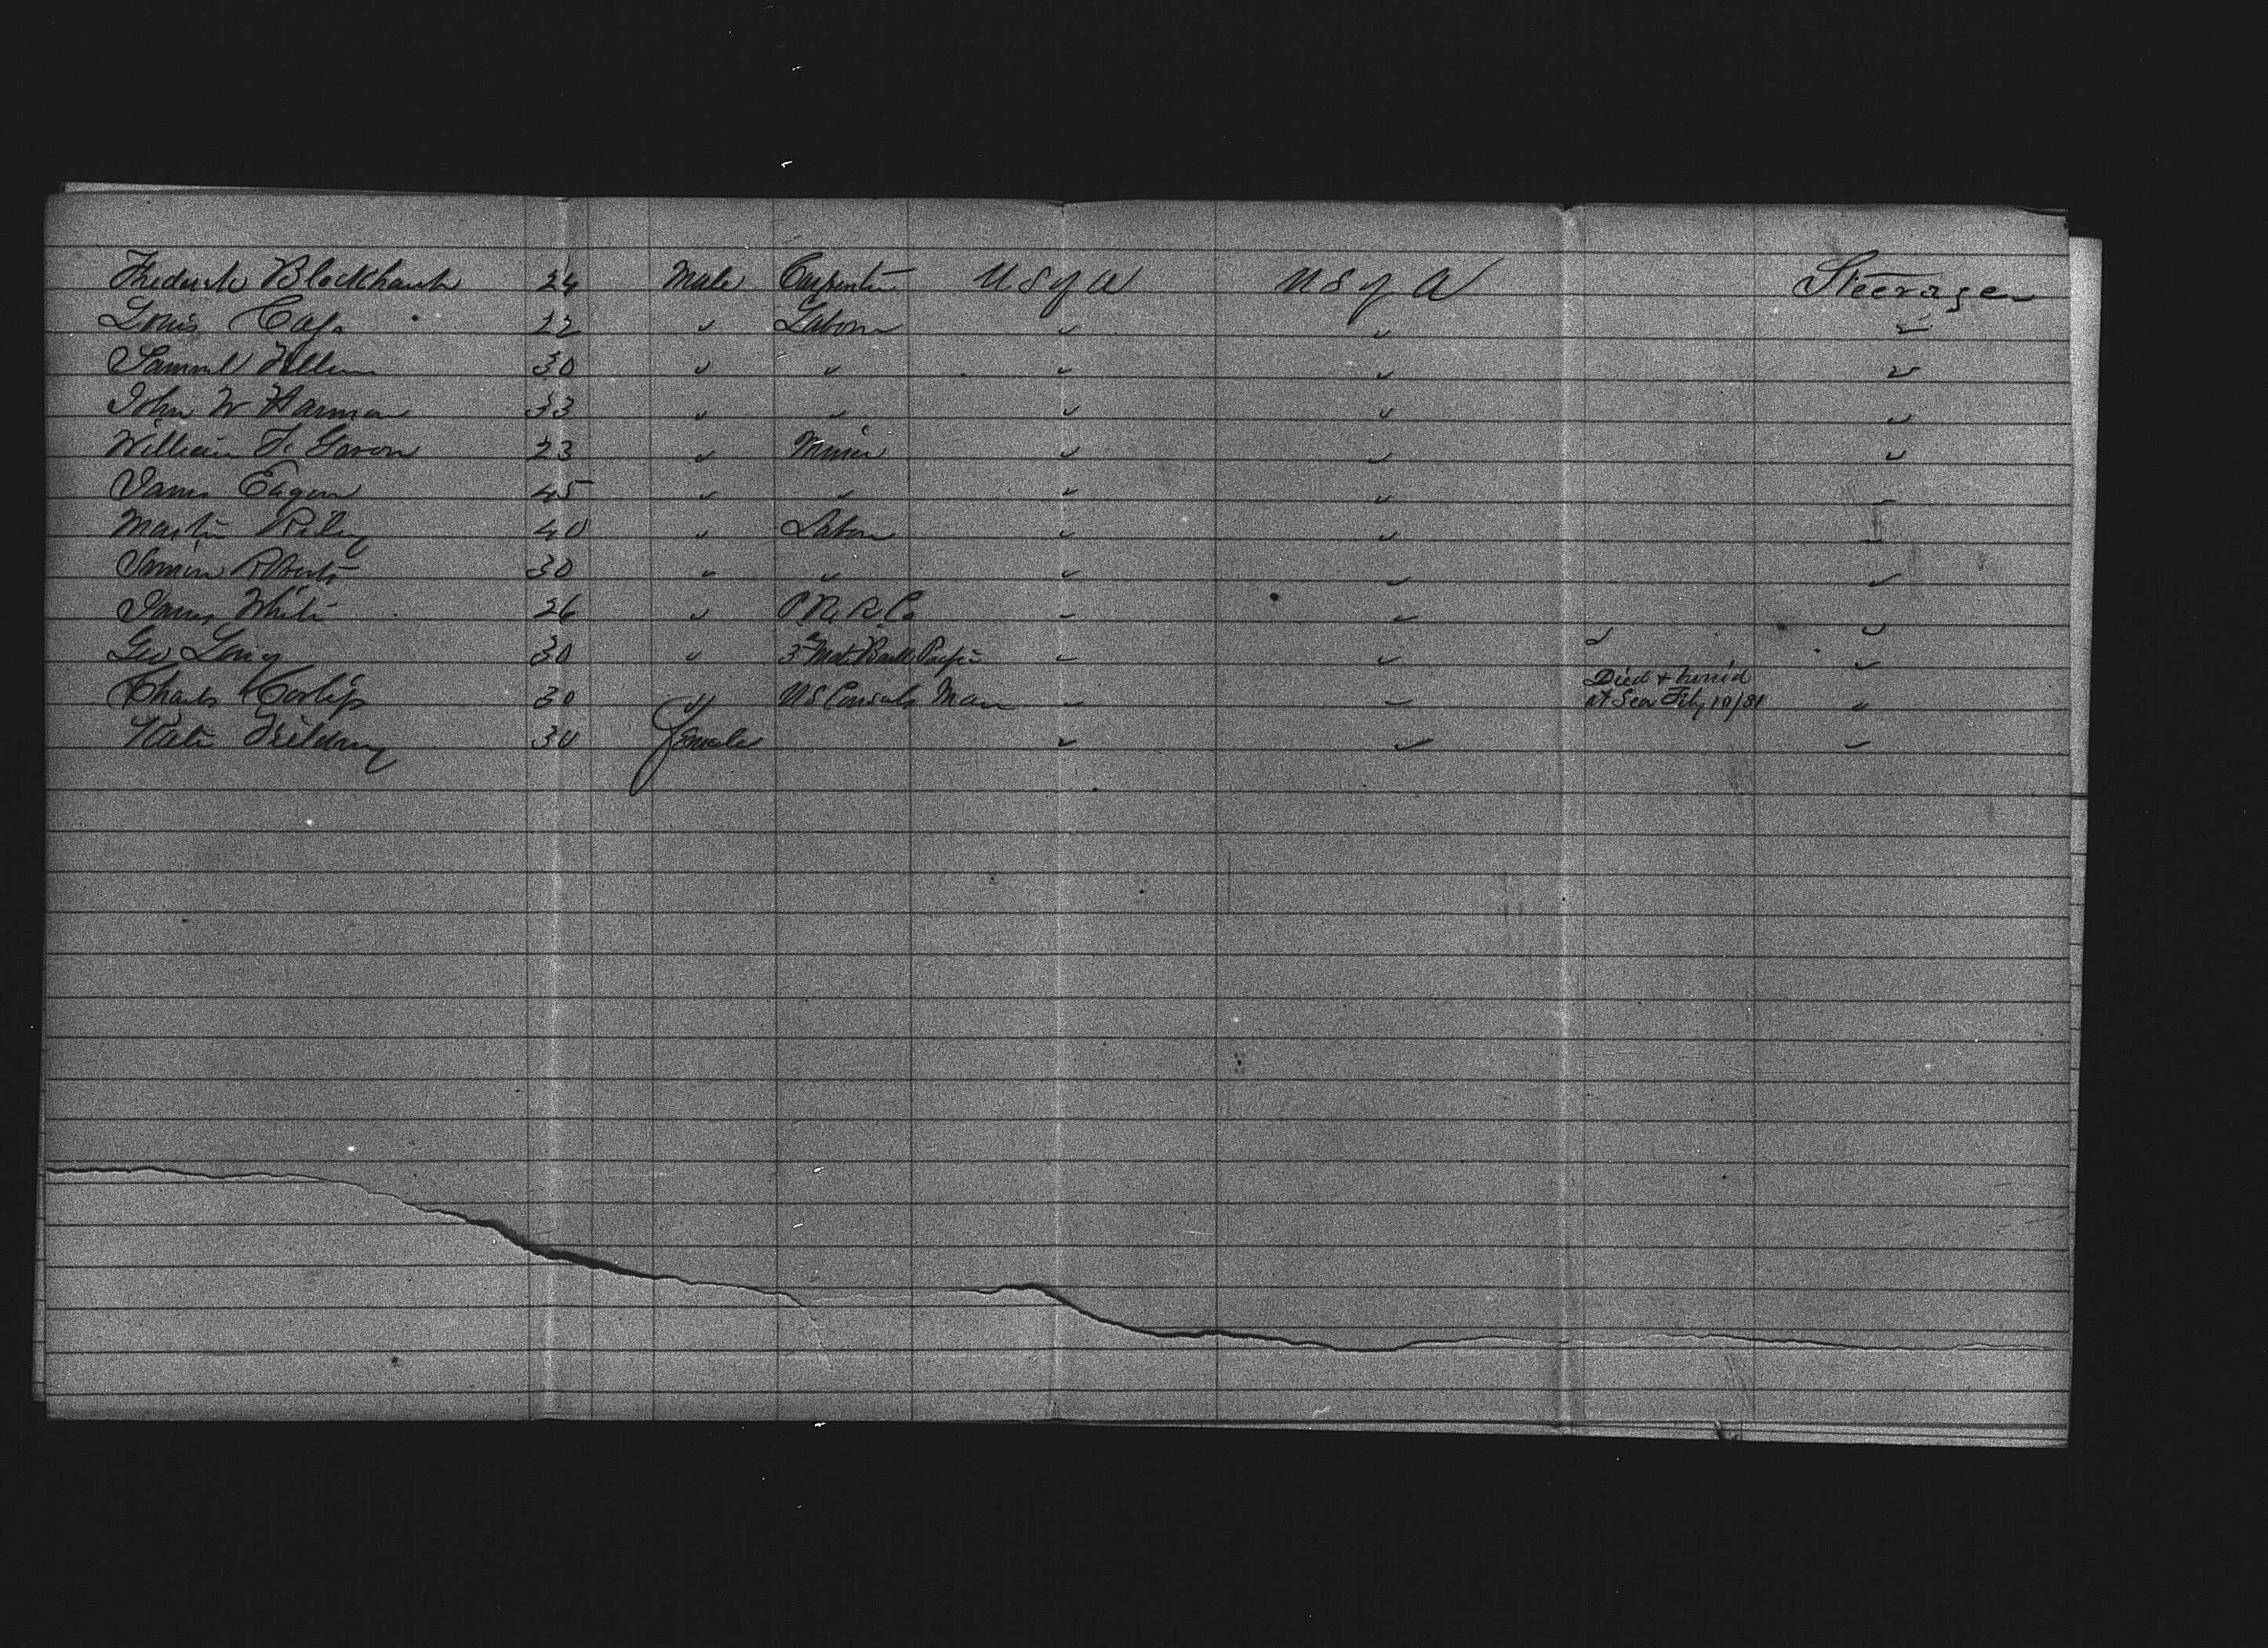 Frederick Blockhaush 24 Male Carpenter U S of A U S of A Steerage
Louis 22 " Labor " " "
Samuel 30 " " " " "
John W Harman 33 " " " " "
William F. Gavon 23 " Miner " " "
James Eagen 45 " " " " "
Martin Riley 40 " Labor " " "
Simeon Roberts 30 " " " " "
James White 26 " P. R. R. Co " " "
Geo Long 30 " 3d Mate Pacific " " " "
Charles Corliss 30 " US Consuls Man " " Died & buried at Sea 10/81 "
Kate 30 Female " " "